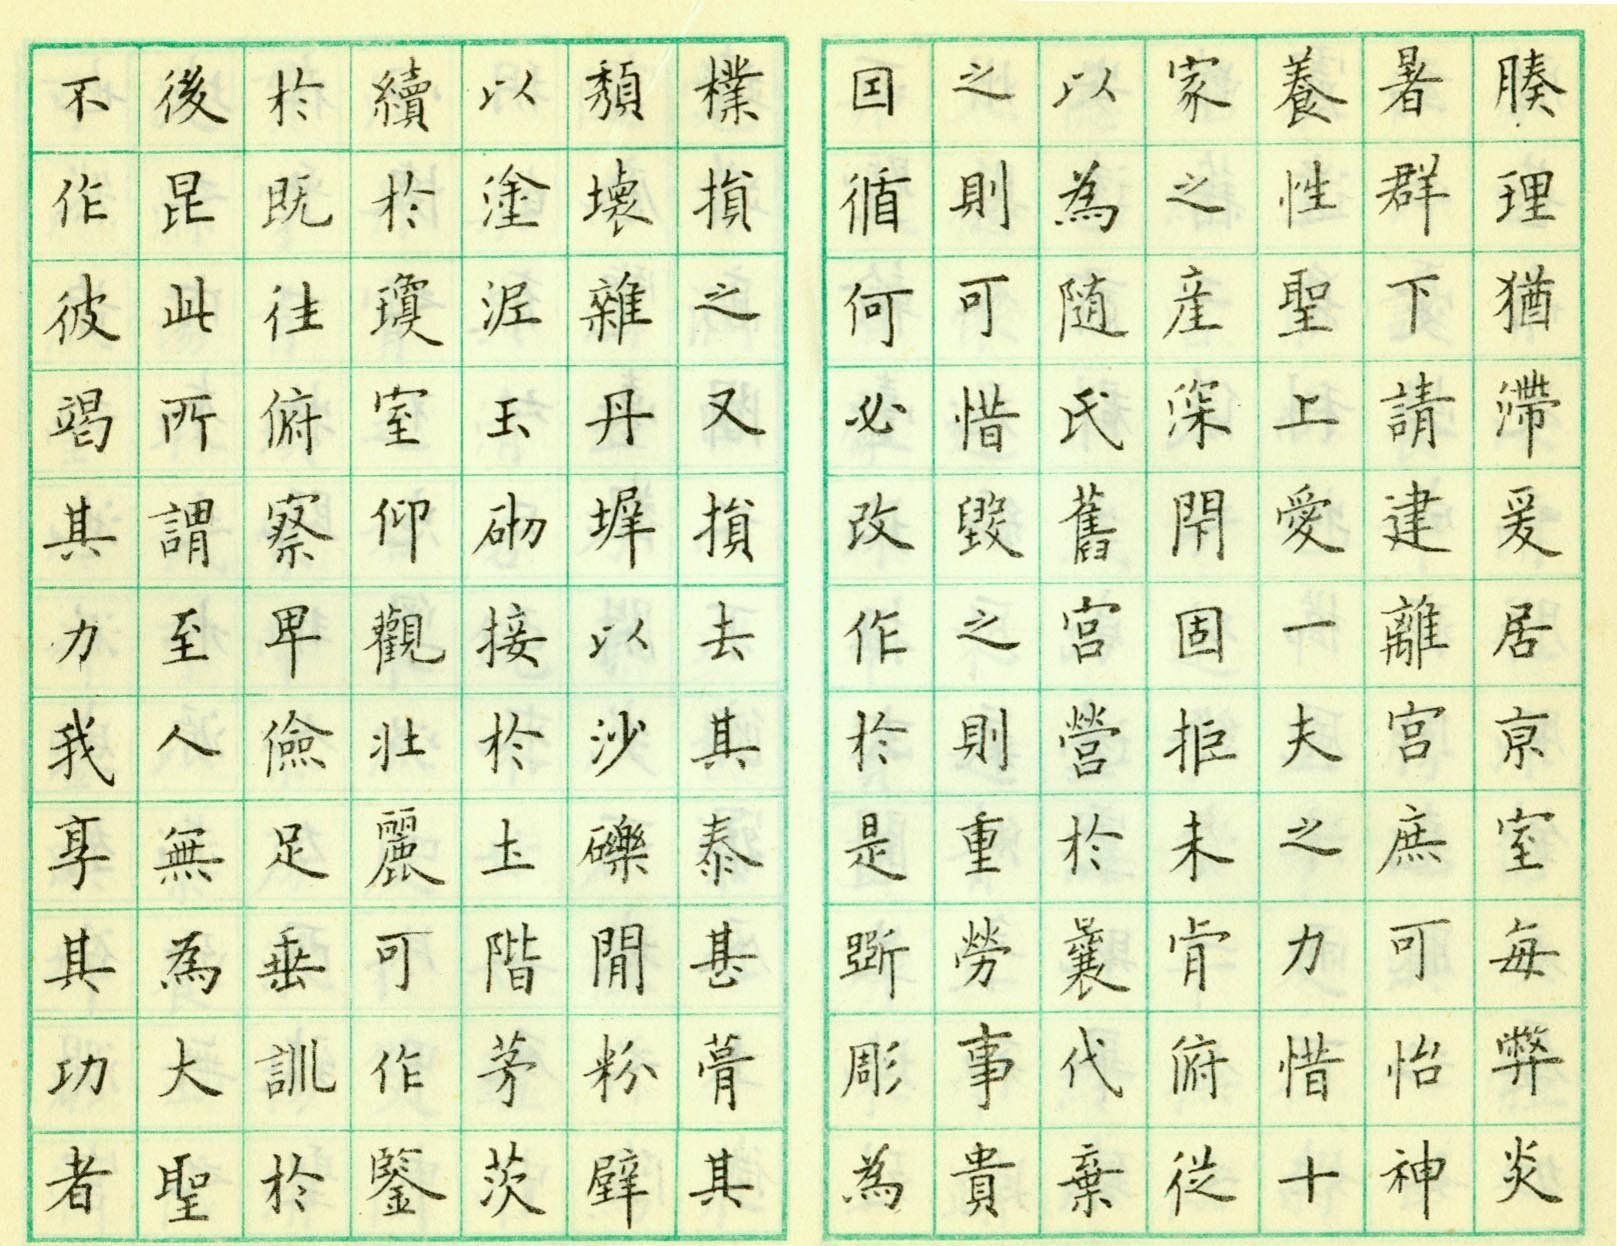 腠理猶滯爰居京室每弊炎
暑群下請建離宮庶可怡神
養性聖上愛一夫之力惜十
家之產深閇固拒未肯俯從
以為随氏舊宮營於曩代棄
之則可惜毀之則重勞事貴
因循何必改作於是斲彫為
樸損之又損去其泰甚葺其
頹壞雜丹墀以沙礫間粉壁
以塗泥玉砌接於土階茅茨
續於瓊室仰觀壯麗可作鑒
於既往俯察卑儉足垂訓於
後昆此所謂至人無為大聖
不作彼竭其力我享其功者